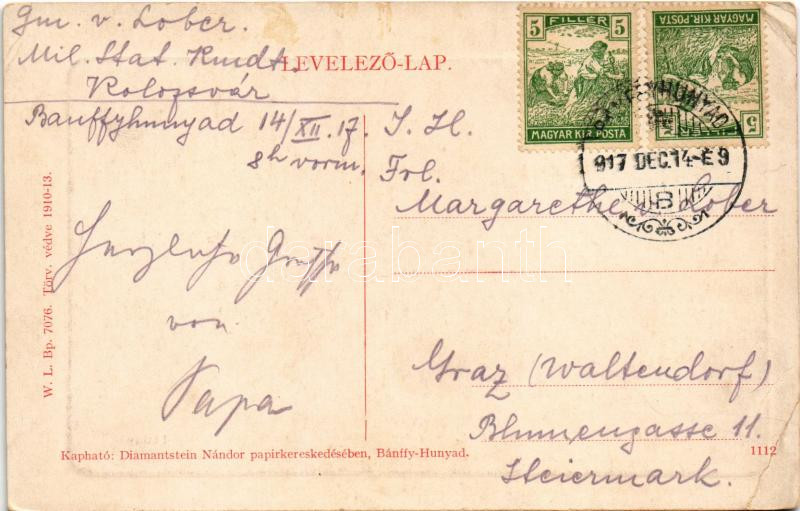 Gm. v. Lober.
Mil. Stat. Kmdt.
Kolozsvár
LEVELEZŐ-LAP.
Banffyhunyad 14/XII. 17.
8h vorm.
Herzlichste Grüsse
von
Papa
S. H.
Frl.
Margarethe v. Lober
Graz (Waltendorf)
Blumengasse 11.
Steiermark.
5 FILLÉR 5
MAGYAR KIR. POSTA
MAGYAR KIR. POSTA
5 FILLÉR
BÁNFFYHUNYAD
917 DEC.14-E9
B
W. L. Bp. 7076. Törv. védve 1910-13.
Kapható: Diamantstein Nándor papirkereskedésében, Bánffy-Hunyad.
1112
darabanth